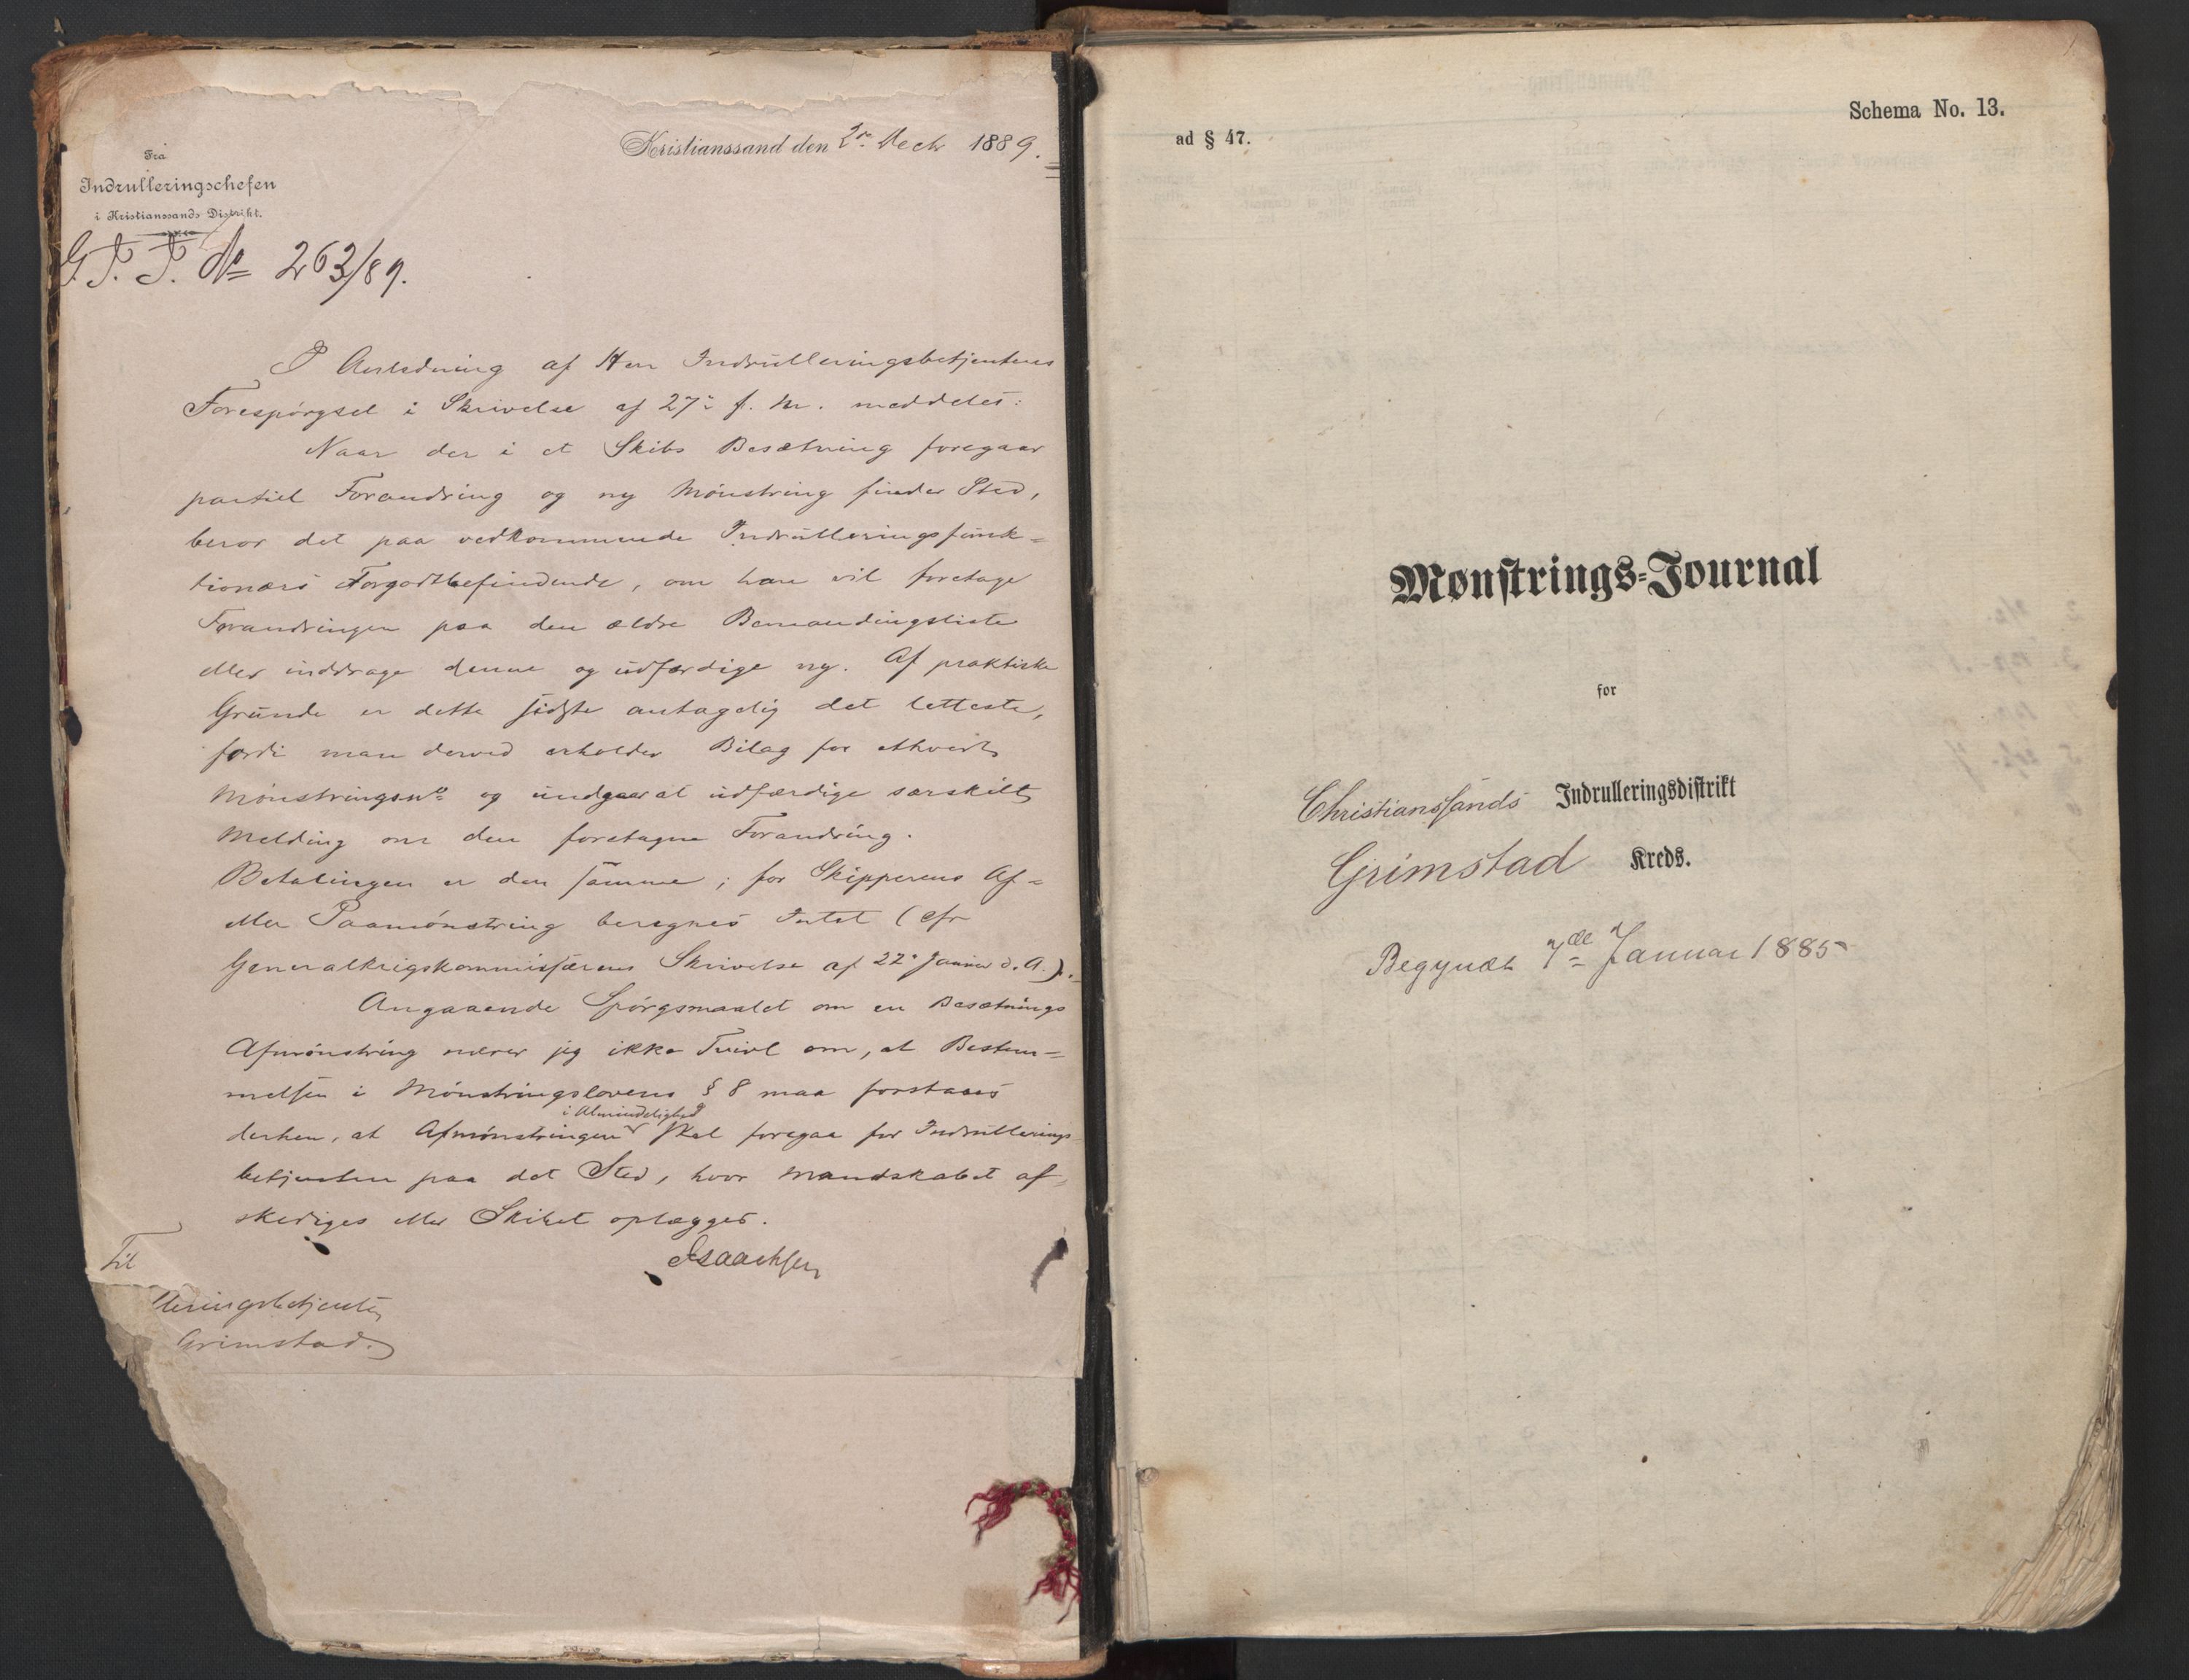 Kristianssand den 2den Decbr 1889.
Fra
Indrulleringschefen
i Kristianssands Distrikt.
No 263/89.
I Anledning af Herr Indrulleringsbetjentens
Forespørgsel i Skrivelse af 27de f. M. meddeles:
Naar der i et Skibs Besætning foregaar
partiel Forandring og ny Mønstring finder Sted,
beror det paa vedkommende Indrulleringsfunk=
tionærs Forgodtbefindende, om han vil foretage
Forandringen paa den ældre Bemandingsliste
eller inddrage denne og udfærdige ny. Af praktiske
Grunde er dette sidste antagelig det letteste,
fordi man derved erholder Bilag for ethvert
Mønstringsno og undgaar at udfærdige særskilt
Melding om den foretagne Forandring.
Betalingen er den samme; for Skipperens Af=
eller Paamønstring beregnes Intet (cfr
Generalkrigskommissærens Skrivelse af 22de Januar d. A.).
Angaaende Spørgsmaalet om en Besætnings
Afmønstring nærer jeg ikke Tvivl om, at Bestem=
melsen i Mønstringslovens § 8 maa forstaaes
derhen, at Afmønstringen i Almindelighed skal foregaa for Indrullerings=
betjenten paa det Sted, hvor Mandskabet af=
skediges eller Skibet oplægges.
Isaachsen
Til
lleringsbetjenten
Grimstad.
Schema No. 13.
ad § 47.
Mønstrings-Journal
for
Christianssands Indrulleringsdistrikt
Grimstad Kreds.
Begyndt 7de Januar 1885